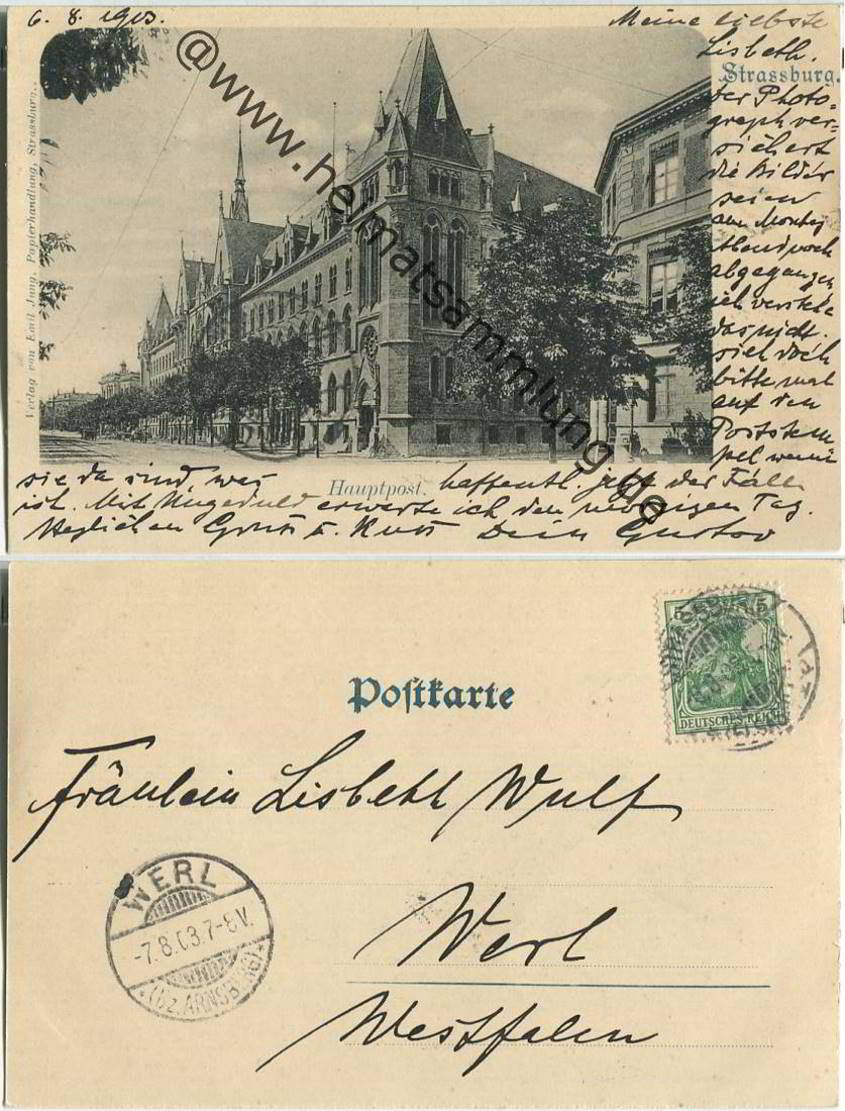 6. 8. 1903.
Meine liebste
Lisbeth.
Strassburg.
Der Photo-
graph ver-
sichert
die Bilder
seien
am Montag
Abend noch
abgegangen
ich verstehe
das nicht.
sieh doch
bitte mal
auf den
Poststem
pel wenn
sie da sind, was
hoffentl. jetzt der Fall
ist. Mit Ungeduld erwarte ich den
Tag.
Herzlichen Gruss u. Kuss Dein Gustav
Hauptpost.
Verlag von Emil Jung, Papierhandlung, Strassburg.
@www.heimatsammlung.de
Postkarte
5 5
DEUTSCHES REICH
STRASSBURG
Fräulein Lisbeth Wulf
WERL
-7.8.03.7-8V.
*(bz.ARNSBERG)*
Werl
Westfalen